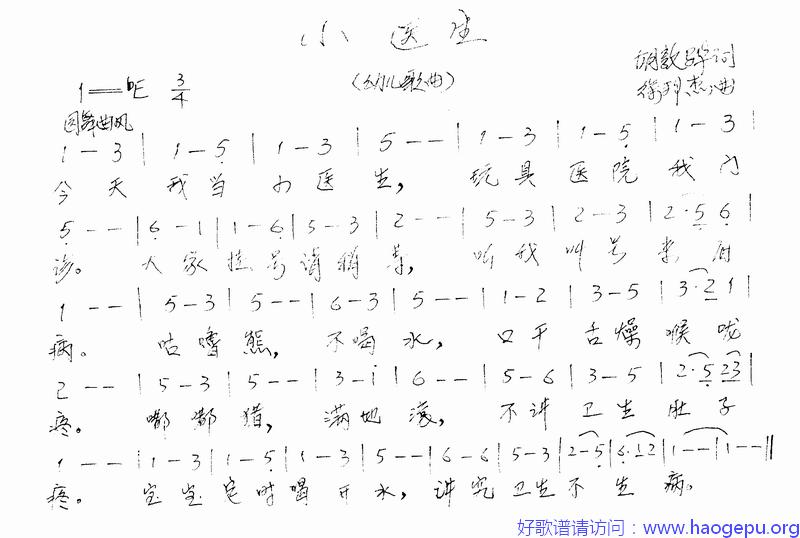 小医生
(幼儿歌曲)
1=♭E 3/4
圆舞曲风
1 - 3 | 1 - 5̣ | 1 - 3 | 5 - - | 1 - 3 | 1 - 5̣ | 1 - 3 |
今天我当小医生,玩具医院我门
5̣ - - | 6̣ - 1 | 1 - 6̣ | 5 - 3 | 2 - - | 5 - 3 | 2 - 3 | 2 · 5̣ 6̣ |
诊。大家挂号请稍等,听我叫号来看
1 - - | 5 - 3 | 5 - - | 6 - 3 | 5 - - | 1 - 2 | 3 - 5 | 3 · 2 1 |
病。咕噜熊,不喝水,口干舌燥喉咙
2 - - | 5 - 3 | 5 - - | 3 - i | 6 - - | 5 - 6 | 3 - 5 | 2 · 5̣ 2 3 |
疼。嘟嘟猪,满地滚,不讲卫生肚子
1 - - | 1 - 3 | 1 - 5̣ | 1 - 3 | 5 - - | 6 - 6 | 5 - 3 | 2 - 5̣ | 6̣ · 1 2 | 1 - - | 1 - - ||
疼。宝宝定时喝开水,讲究卫生不生病。
好歌谱请访问:www.haogepu.org